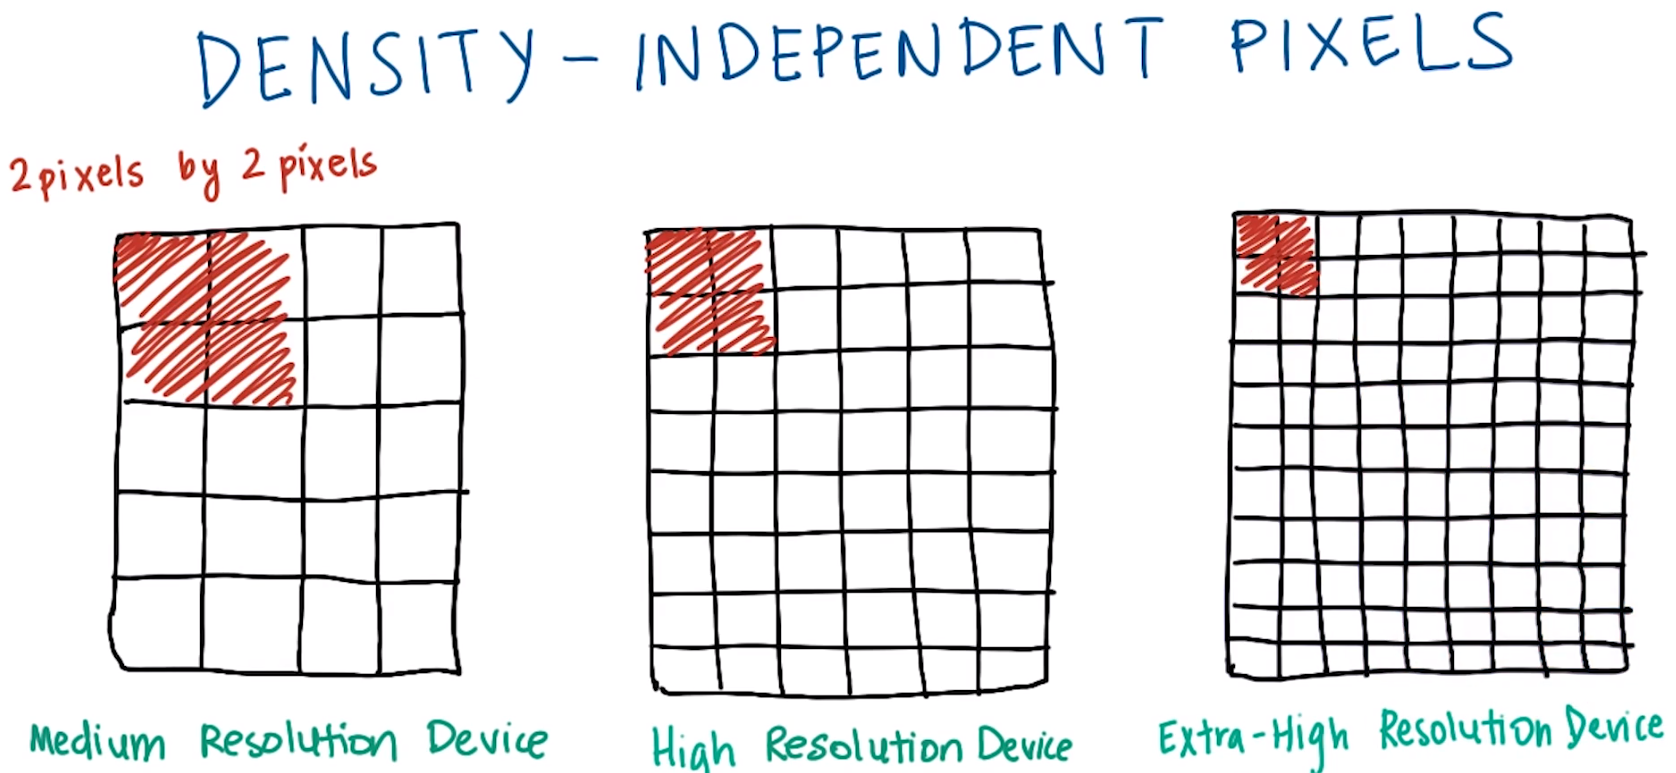 DENSITY-INDEPENDENT PIXELS
2 pixels by 2 pixels
Medium Resolution Device
High Resolution Device
Extra-High Resolution Device